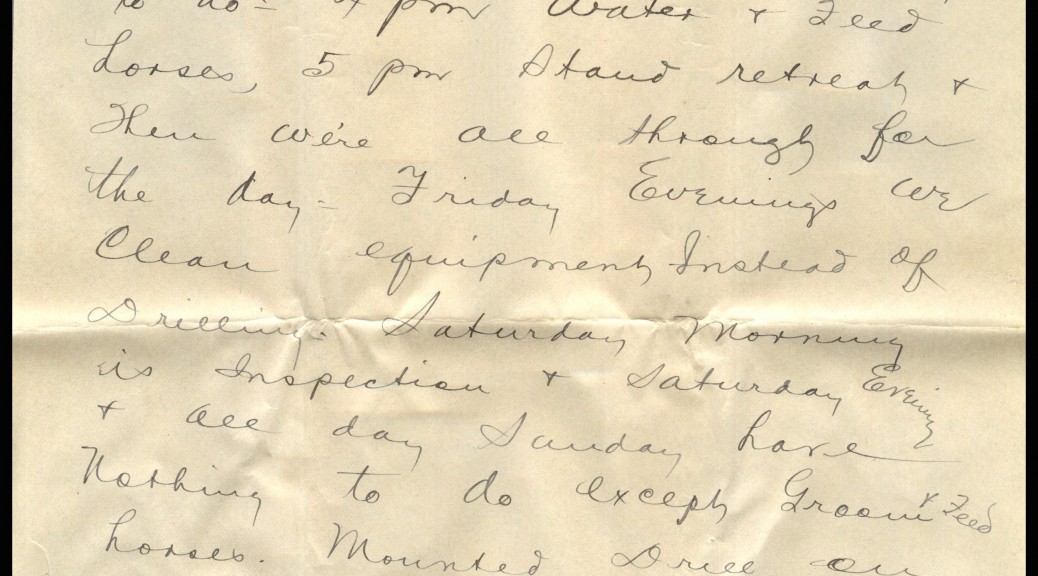 to do - 4 pm Water + Feed
horses, 5 pm Stand retreat +
Then we're all through for
the day - Friday Evenings we
Clean equipment Instead of
Drilling. Saturday Morning
is Inspection + Saturday Evening
+ all day Sunday have
Nothing to do except Groom + Feed
horses. Mounted Drill on